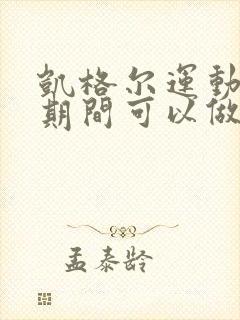 凱格尔運動
期間可以做
孟泰龄